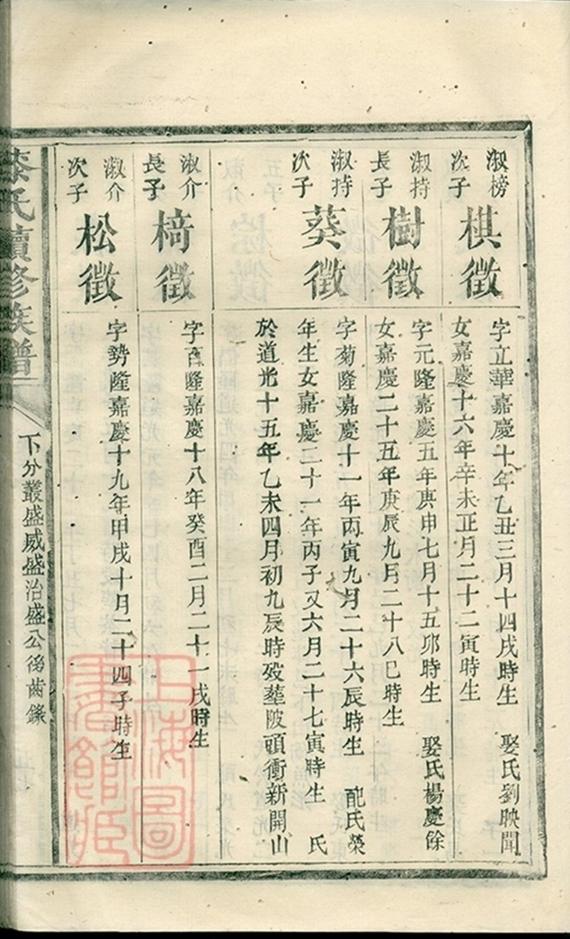 淑榜
次子
棋徵
字立華嘉慶十年乙丑三月十四戌時生 娶氏劉映聞
女嘉慶十六年辛未正月二十二寅時生
淑持
長子
樹徵
字元隆嘉慶五年庚申七月十五卯時生 娶氏楊慶餘
女嘉慶二十五年庚辰九月二十八巳時生
淑持
次子
葵徵
字菊隆嘉慶十一年丙寅九月二十六辰時生 配氏榮
年生女嘉慶二十一年丙子又六月二十七寅時生 氏
於道光十五年乙未四月初九辰時歿塟陂頭衝新開山
淑介
長子
椅徵
字百隆嘉慶十八年癸酉二月二十一戌時生
淑介
次子
松徵
字勢隆嘉慶十九年甲戌十月二十四子時生
氏續修族譜
下分叢盛威盛治盛公後齒錄
上海圖書館藏